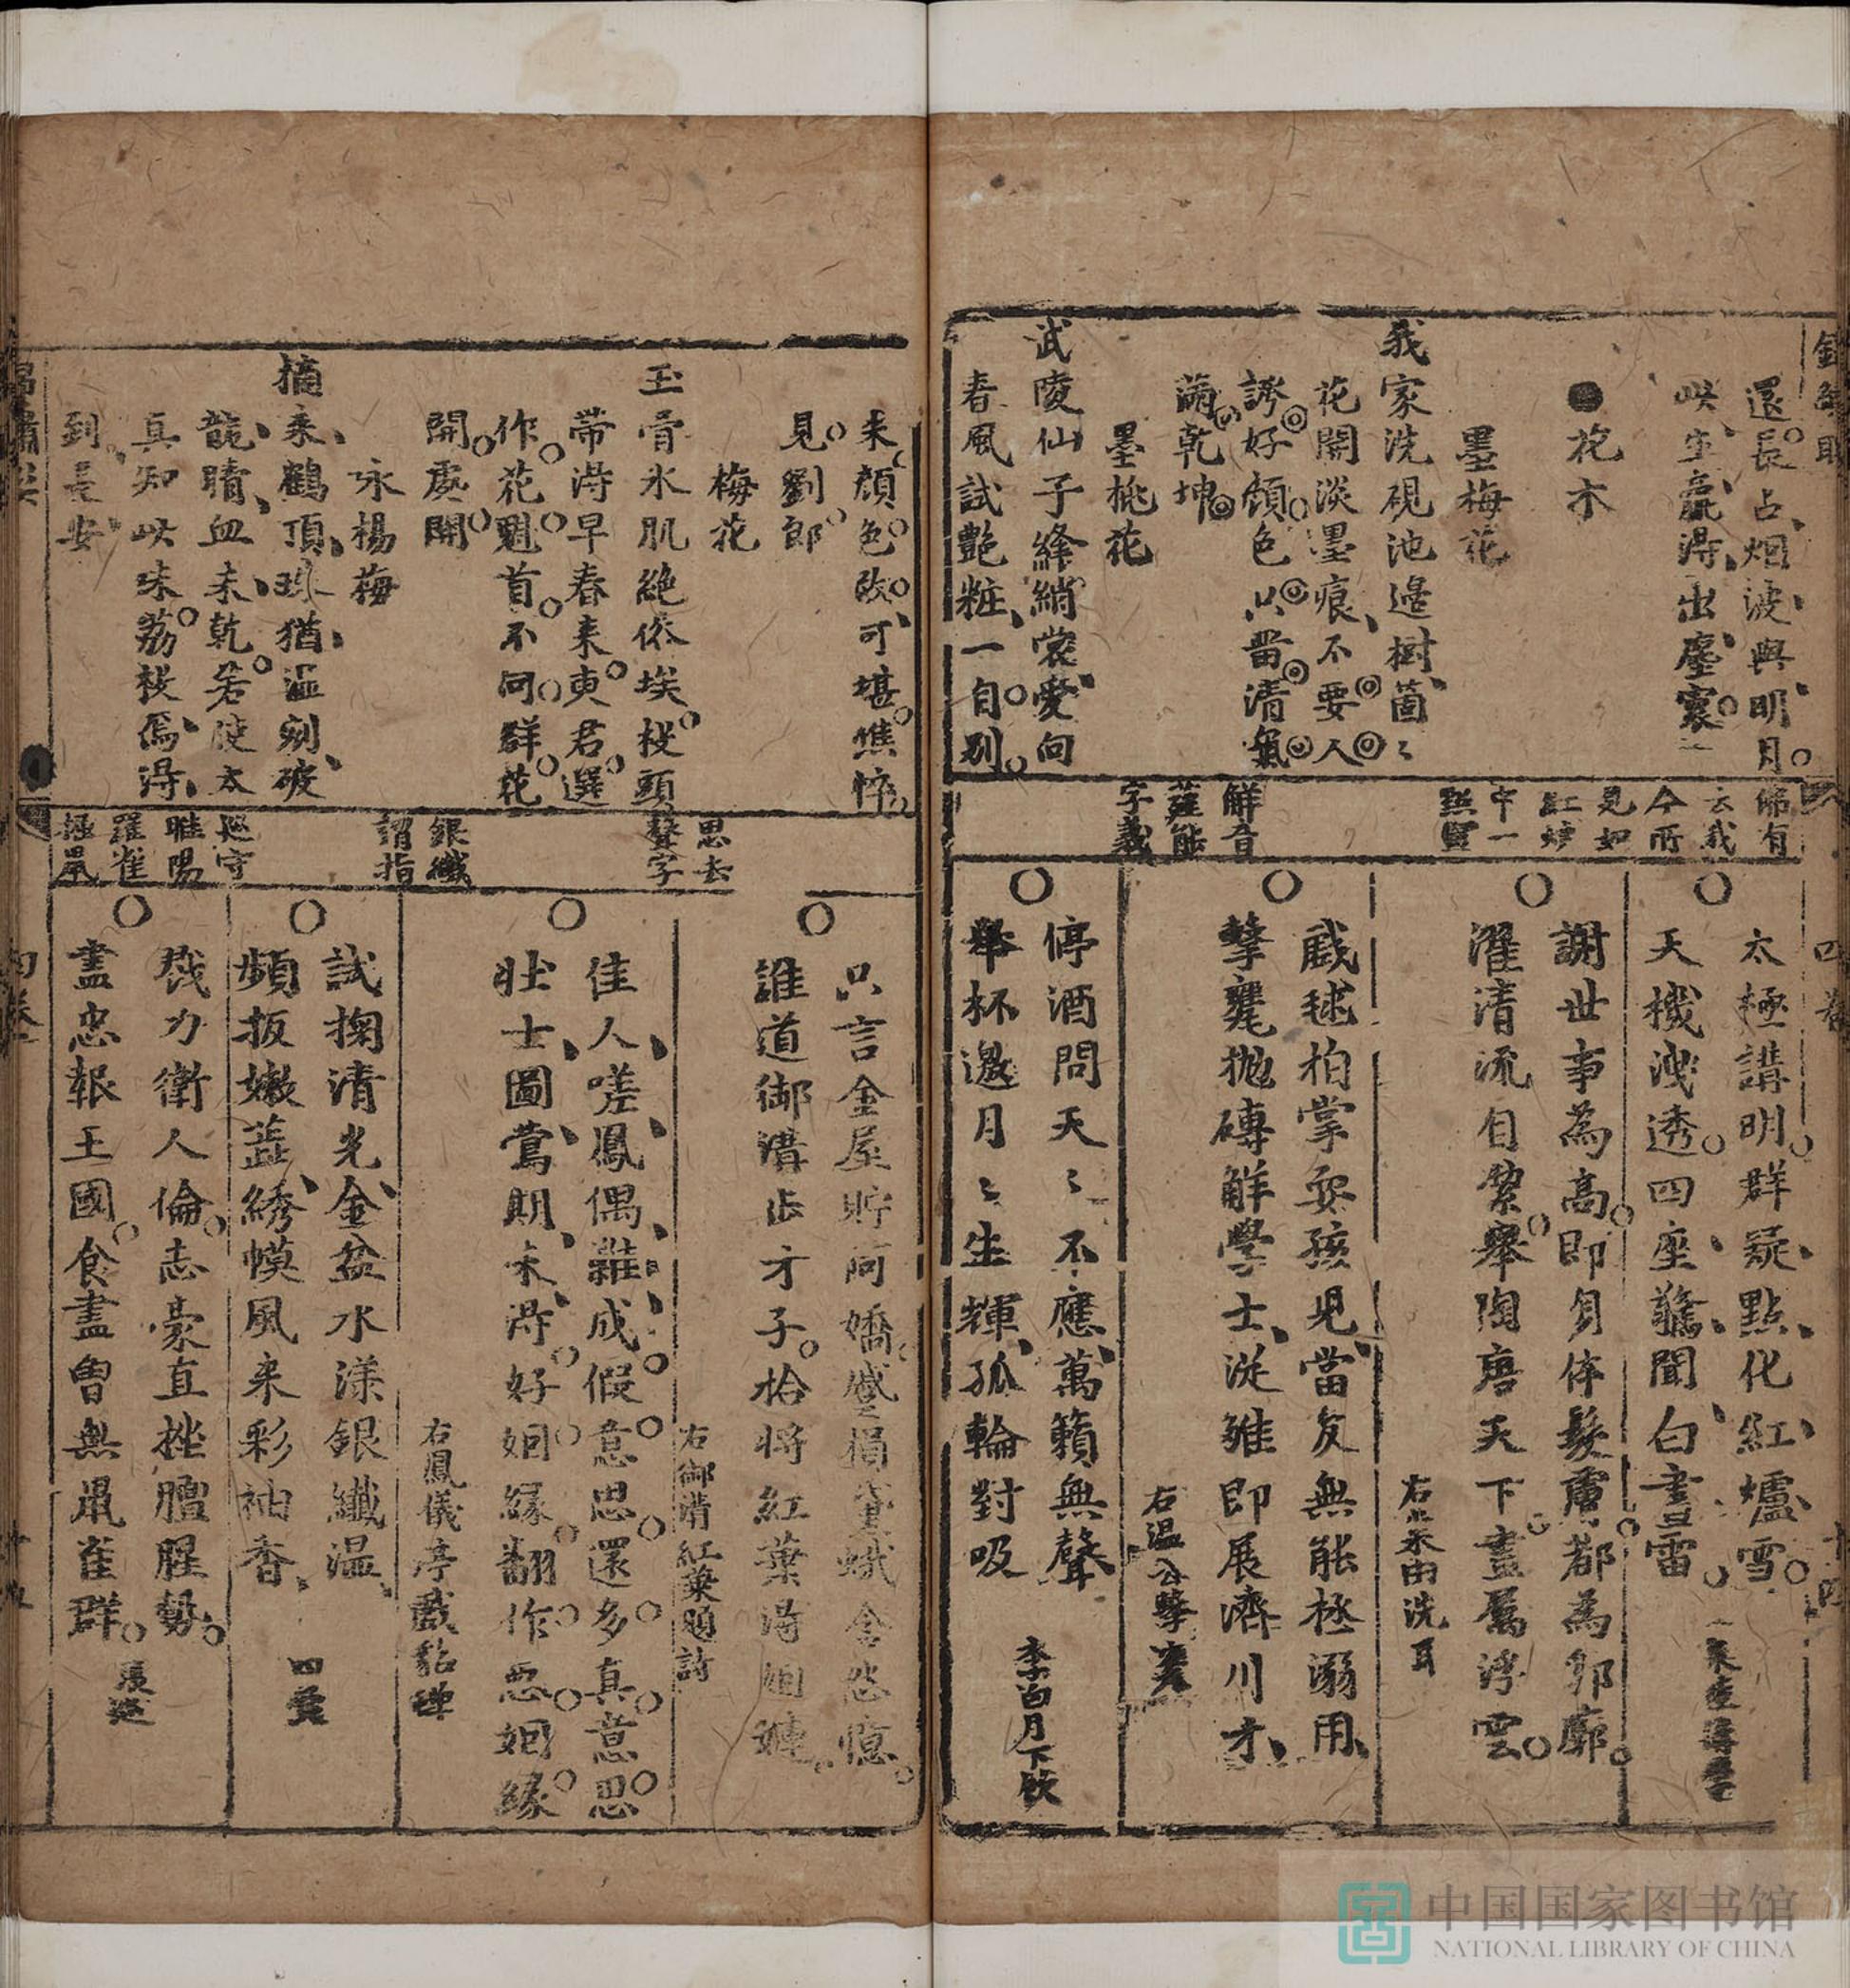 還長占烟波與明月
此生羸得出塵寰
花木
墨梅花
我家洗硯池邊樹箇〻
花開淡墨痕不要人
誇好顏色只畱清氣
滿乾坤
墨桃花
武陵仙子絳綃裳愛向
春風試艷粧一自別
佛有
云我
今所
見如
紅炉
中一
點雪
觧音
薤能
字義
太極講明群疑點化紅爐雪
天機洩透四座驚聞白晝雷
謝世事為高即身体髮膚都為郛廓
濯清流自潔舉陶唐天下盡属浮雲
右巢由洗耳
戲毬拍掌耍孩児當友無能拯溺用
擊甕抛磚觧學士從雖即展濟川才
右温公擊甕
停酒問天〻不應萬籟無聲
舉杯邀月〻生輝孤輪對吸
李白月下飲
四卷
来顏色改可堪憔悴
見劉郎
梅花
玉骨氷肌絶俗埃枝頭
帯得早春来東君選
作花魁首不同群花
開處開
咏楊梅
摘来鶴頂珠猶湿剜破
龍睛血未乾若使太
真知此味荔枝焉得
到長安
思去
聲字
銀纎
謂指
廵守
睢陽
羅雀
掘鼠
只言金屋貯阿嬌
誰道御溝出才子拾將紅葉得姻
右御溝紅葉題詩
佳人嗟鳳偶難成假意思還多真意思
壯士圖鶯期未得好姻緣翻作惡姻緣
右鳳儀亭戲貂蟬
試掬清光金盆水漾銀纎温
頻扳嫩蕋綉幙風来彩袖香
戮力衛人倫志豪直挫膻腥勢
盡忠報王國食盡曽無鼠雀群
張廵
中国国家图书馆
NATIONAL LIBRARY OF CHINA